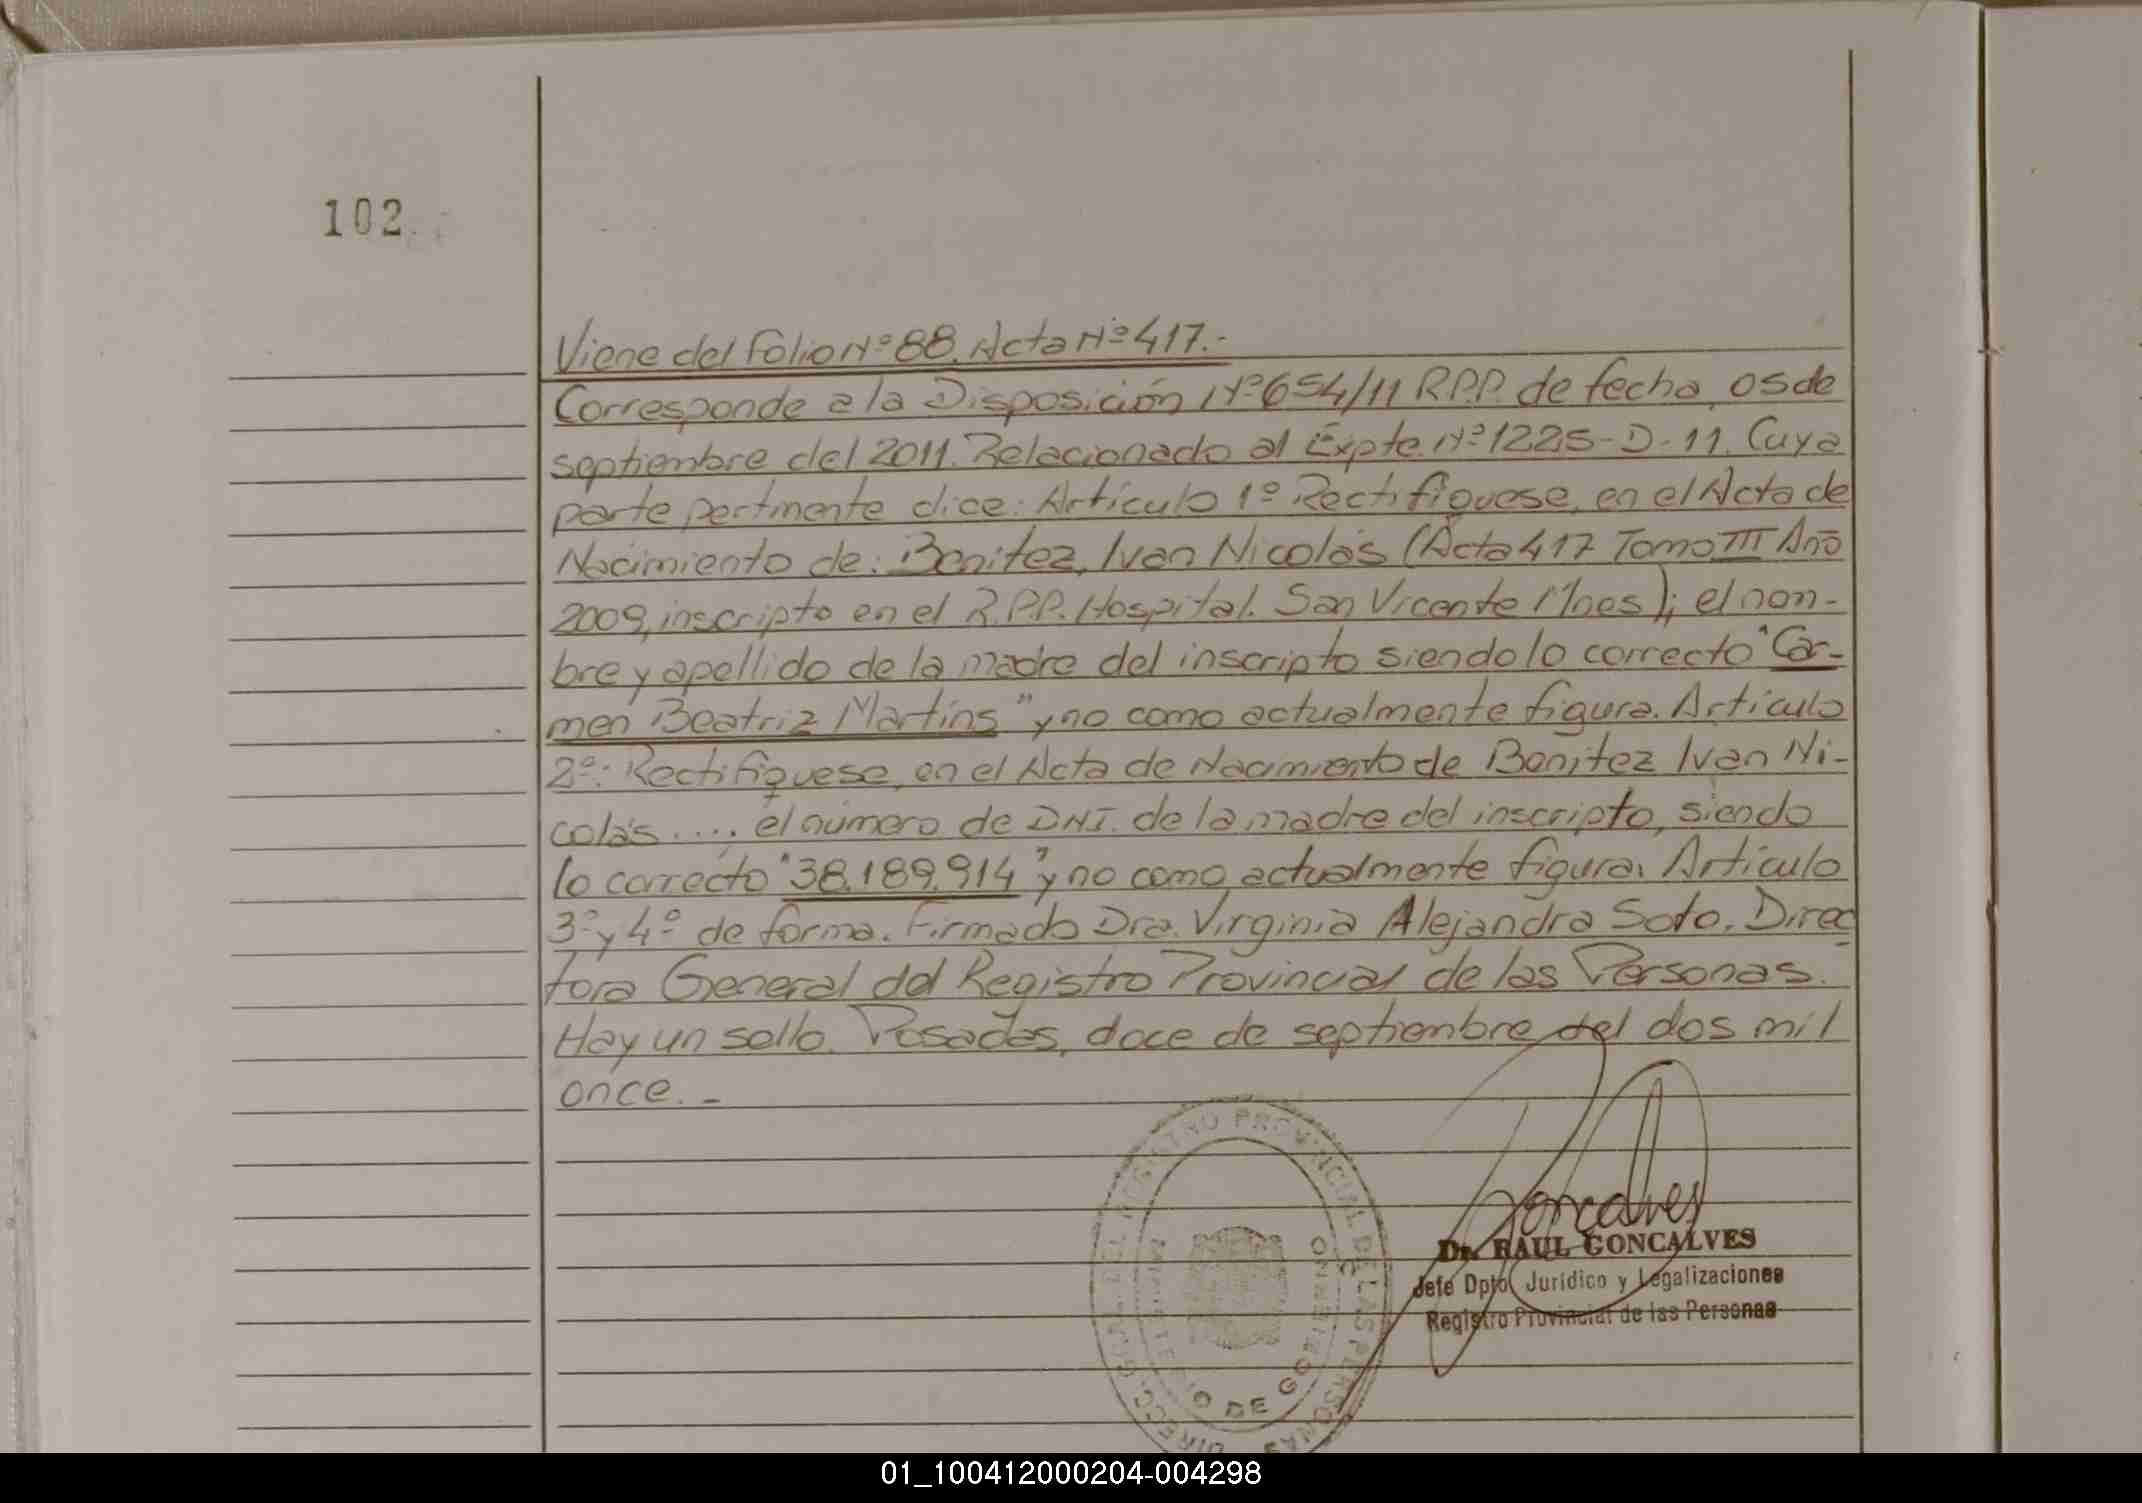 102
Viene del Folio Nº 88. Acta Nº 417.-
Corresponde a la Disposición Nº 654/11 R.P.P. de fecha, 05 de
septiembre del 2011. Relacionado al Expte. Nº 1225-D-11. Cuya
parte pertinente dice: Artículo 1º Rectifíquese, en el Acta de
Nacimiento de: Benitez, Ivan Nicolás (Acta 417 Tomo III Año
2009, inscripto en el R.P.P. Hospital. San Vicente Mnes); el nom-
bre y apellido de la madre del inscripto siendo lo correcto "Car-
men Beatriz Martins" y no como actualmente figura. Artículo
2º: Rectifíquese, en el Acta de Nacimiento de Benitez Ivan Ni-
colás ..... el número de DNI. de la madre del inscripto, siendo
lo correcto "38.189.914" y no como actualmente figura. Artículo
3º y 4º de forma. Firmado Dra. Virginia Alejandra Soto. Direc
tora General del Registro Provincial de las Personas.
Hay un sello. Posadas, doce de septiembre del dos mil
once.-
DIRECC. GRAL. DEL REGISTRO PROVINCIAL DE LAS PERSONAS
DE GOBIERNO
Goncalves
Dr. RAUL GONCALVES
Jefe Dpto. Jurídico y Legalizaciones
Registro Provincial de las Personas
01_100412000204-004298